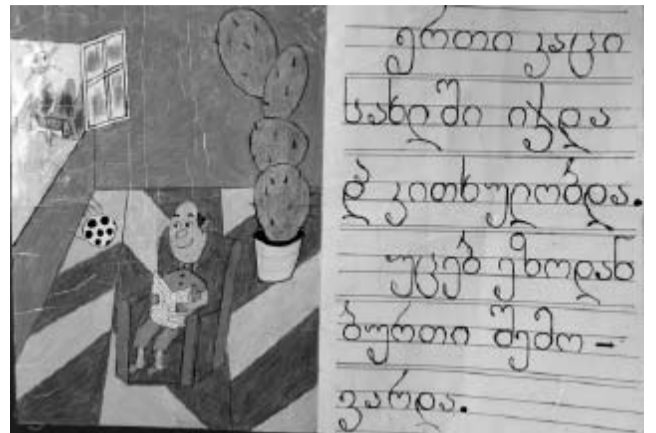 ერთი კაცი
სახლში იჯდა
და კითხულობდა.
უცებ ეზოდან
ბურთი შემო-
ვარდა.